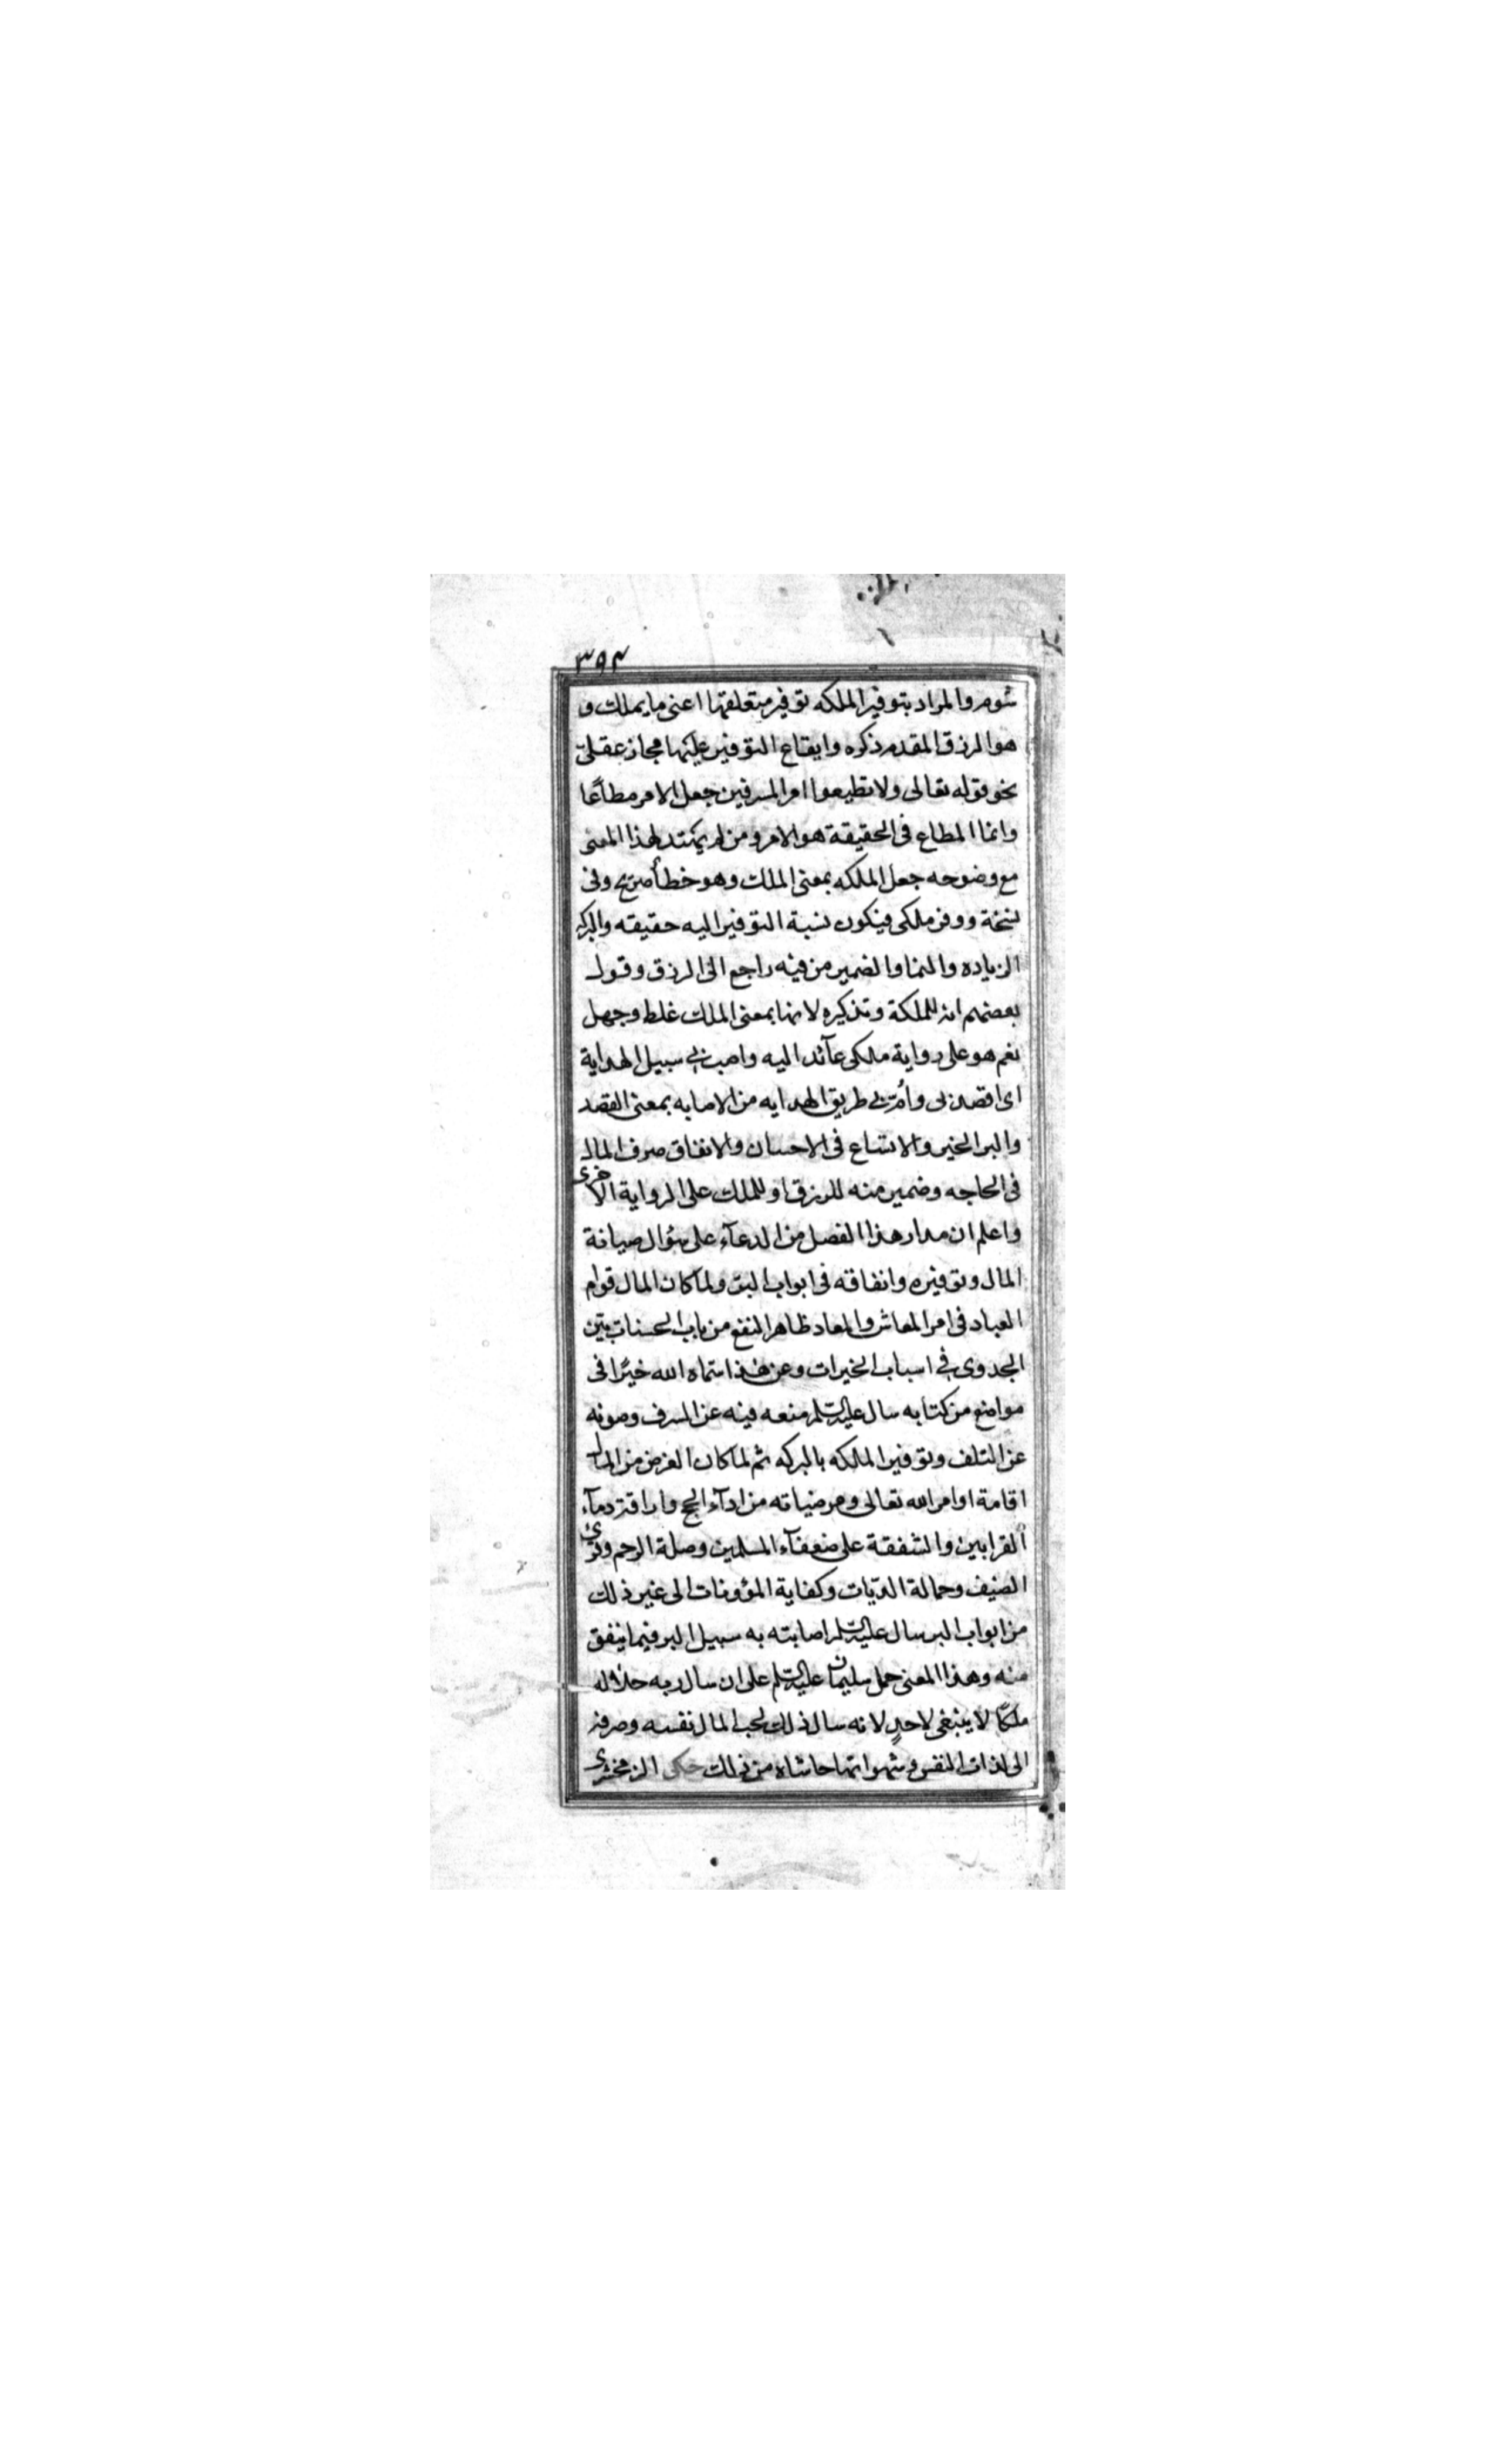 ٣٥٤
شوم والمراد بتوفير الملكه توفير متعلقها اعنى ما يملك و
هو الرزق المقدم ذكره وايقاع التوفير عليها مجاز عقلىّ
نحو قوله تعالى ولا تطيعوا امر المسرفين جعل الامر مطاعًا
وانما المطاع فى الحقيقة هو الامر ومن لم يهتد لهذا المعنى
مع وضوحه جعل الملكه بمعنى الملك وهو خطأ صريح وفى
نسخة ووفر ملكى فيكون نسبة التوفير اليه حقيقه والبركه
الزياده والنما والضمير من فيه راجع الى الرزق وقول
بعضهم انه للملكة وتذكيره لانها بمعنى الملك غلط وجهل
نعم هو على رواية ملكى عآئد اليه واصب بى سبيل الهداية
اى اقصد بى وأمرّ بى طريق الهدايه من الاصابه بمعنى القصد
والبر الخير والاتساع فى الاحسان والانفاق صرف المال
فى الحاجه وضمير منه للرزق او للملك على الرواية الاخرى
واعلم ان مدار هذا الفصل من الدعآء على سؤال صيانة
المال وتوفيره وانفاقه فى ابواب البرّ ولما كان المال قوام
العباد فى امر المعاش والمعاد ظاهر النفع من باب الحسنات بيّن
الجدوى فى اسباب الخيرات وعن هذا سمّاه الله خيرًا فى
مواضع من كتابه سال عليه السلم منعه فيه عن السرف وصونه
عن التلف وتوفير الملكه بالبركه ثم لما كان الغرض من المال
اقامة اوامر الله تعالى ومرضياته من ادآء الحج واراقة دمآء
القرابين والشفقة على ضعفآء المسلمين وصلة الرحم وقرى
الضيف وحمالة الديّات وكفاية المؤونات الى غير ذلك
من ابواب البر سال عليه السلم اصابته به سبيل البر فيما ينفق
منه وهذا المعنى حمل سليمان عليه السلم على ان سال ربه جل جلاله
ملكًا لا ينبغى لاحدٍ لانه سال ذلك لحب المال نفسه وصرفه
الى لذات النفس وشهواتها حاشاه من ذلك حكى الزمخشرى